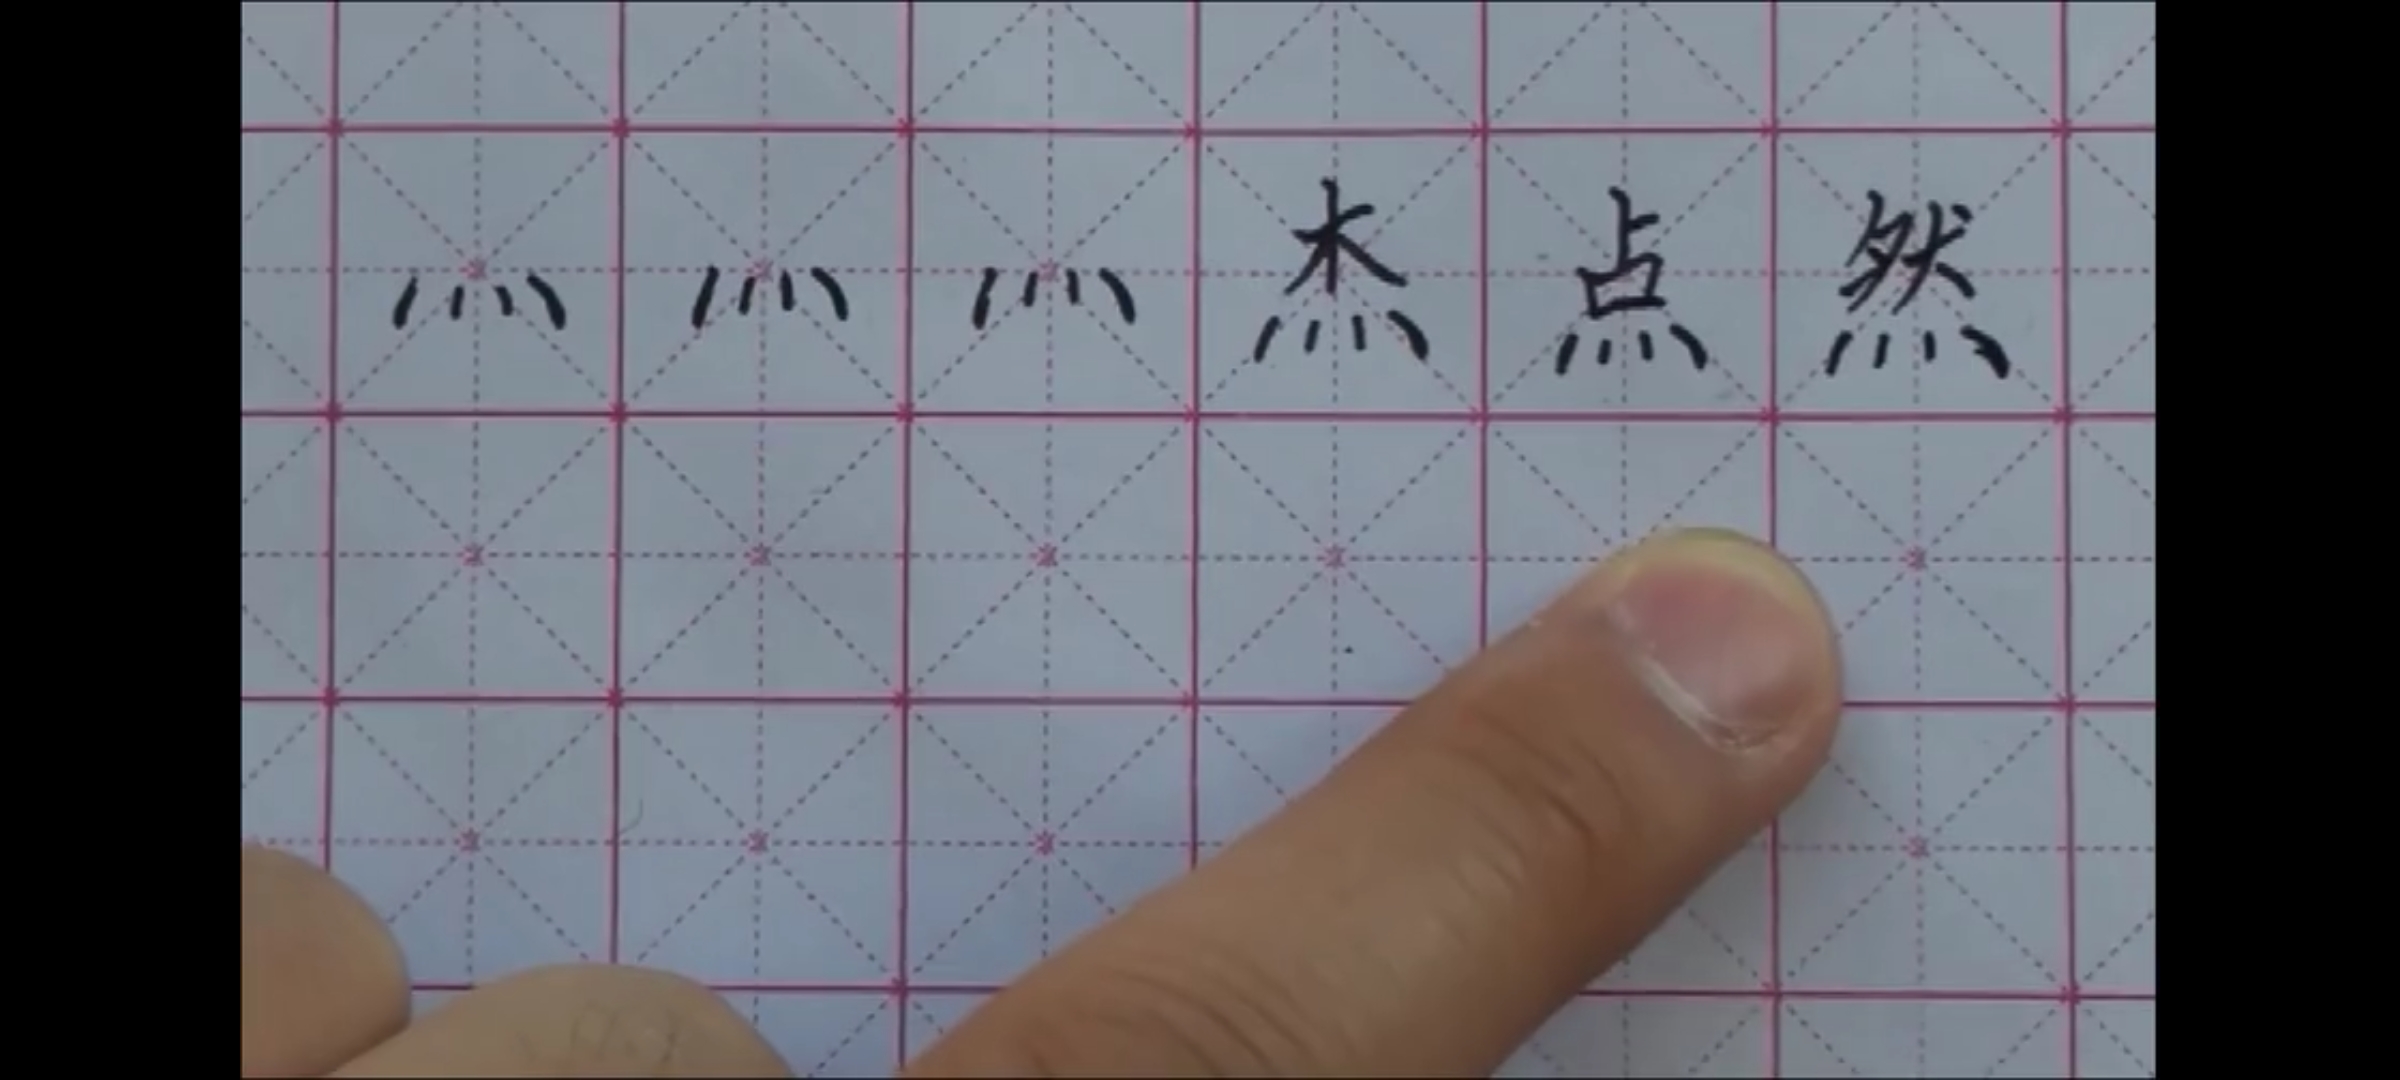 灬灬灬杰点然